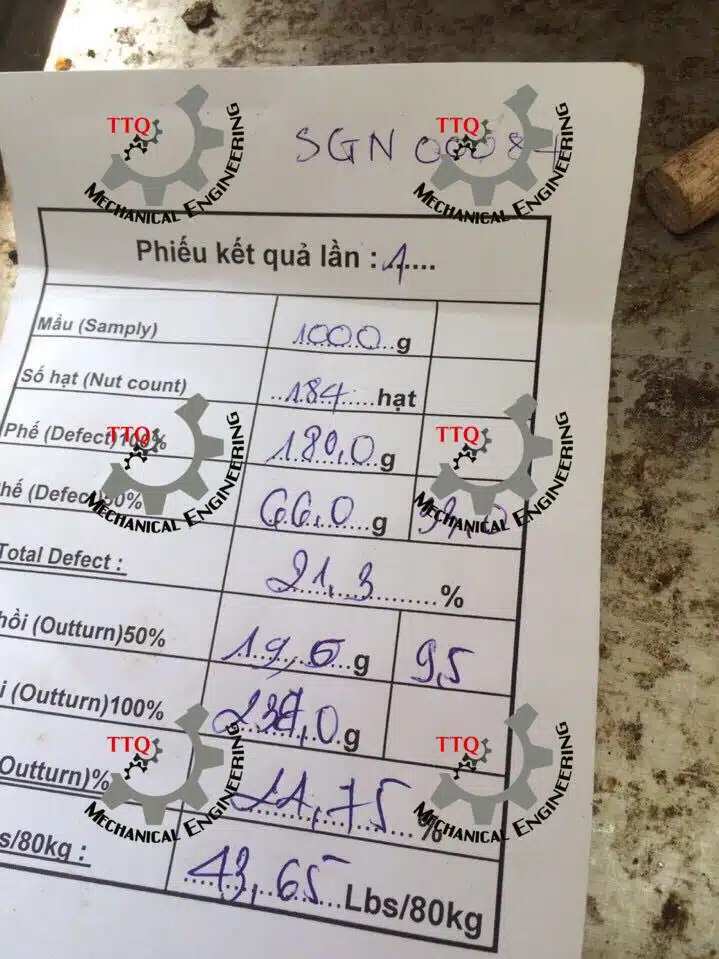 SGN 00084
Phiếu kết quả lần : 1....
Mẫu (Samply) 1000 g
Số hạt (Nut count) 184 hạt
Phế (Defect)100% 180,0 g
hế (Defect)50% 66,0 g
Total Defect : 21,3 %
hồi (Outturn)50% 19,0 g 9,5
i (Outturn)100% g
Outturn)% %
s/80kg : 43,65 Lbs/80kg
TTQ
MECHANICAL ENGINEERING
TTQ
MECHANICAL ENGINEERING
TTQ
MECHANICAL ENGINEERING
TTQ
MECHANICAL ENGINEERING
TTQ
MECHANICAL ENGINEERING
TTQ
MECHANICAL ENGINEERING